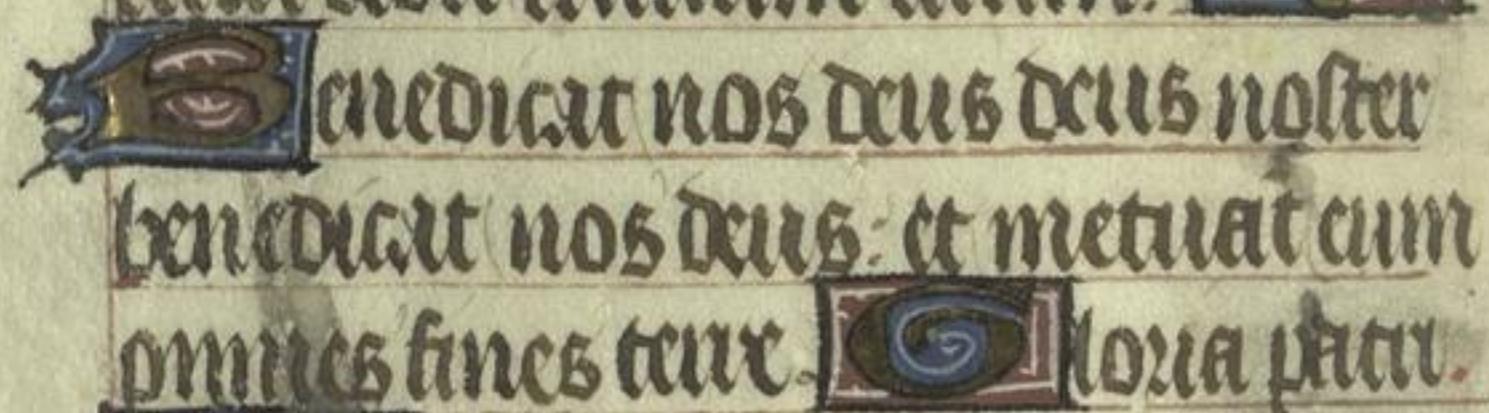 Benedicat nos deus deus noster
benedicat nos deus: et metuat eum
omnes fines terre. Gloria patri.